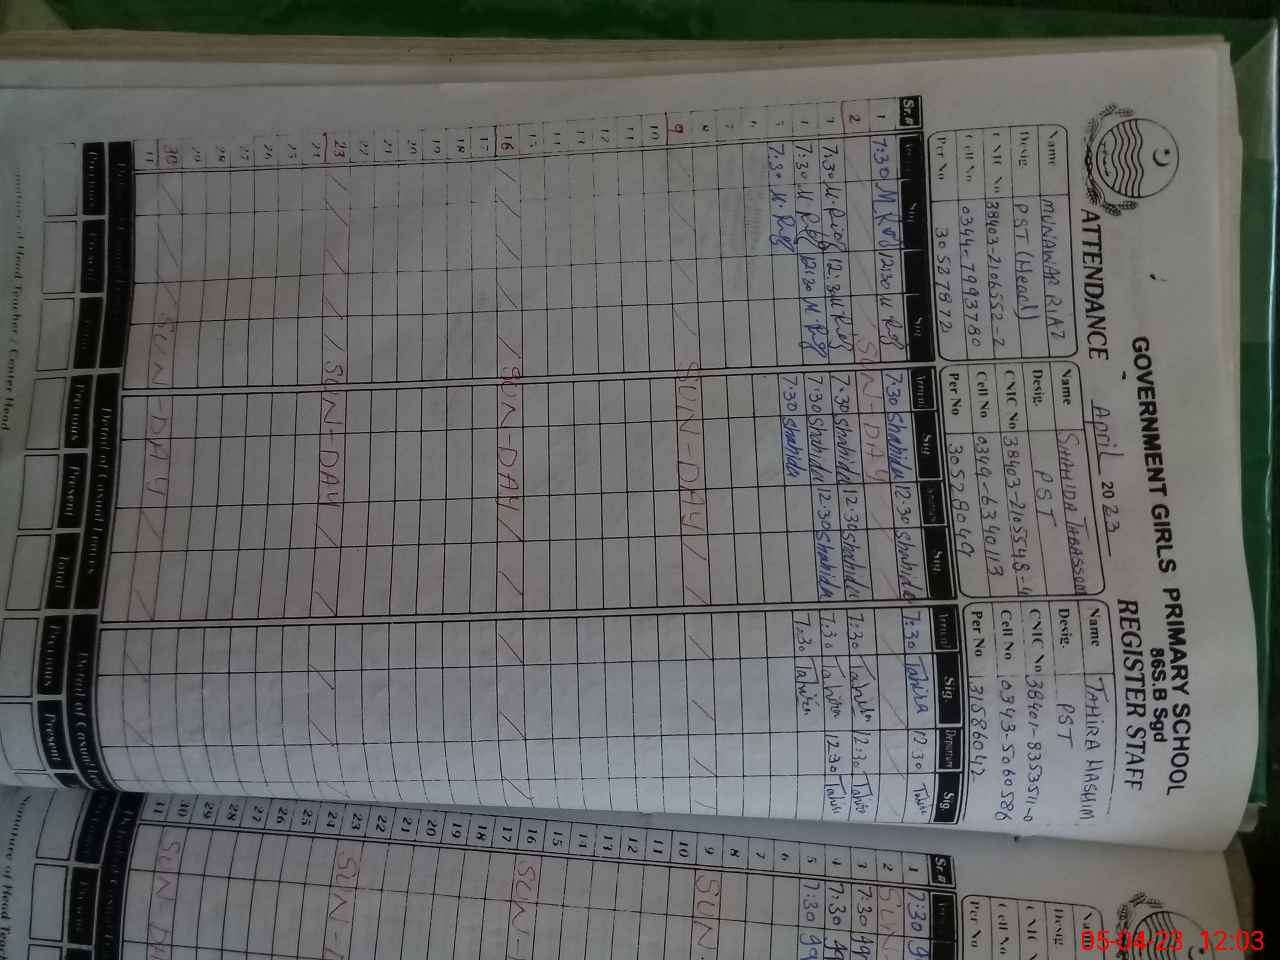 GOVERNMENT GIRLS PRIMARY SCHOOL
86S.B Sgd
ATTENDANCE April 2023 REGISTER STAFF
Name MUNAWAR RIAZ
Desig. PST (Head)
CNIC No 38403-2106552-2
Cell No 0344-7993780
Per No 30527872
Name SHAHIDA TABASSOM
Desig. PST
CNIC No 38403-2105548-4
Cell No 0349-6340113
Per No 30528049
Name TAHIRA HASHIM
Desig. PST
CNIC No 38401-8353511-0
Cell No 0343-5060586
Per No 31586042
Sr.# Sig Sig Arrival Sig Sig Arrival Sig. Departure Sig.
1 7:30 12:30 7:30 Shahida 12:30 Shahida 7:30 Tahira 12:30
2 SUN-DAY
3 7:30 12:30 7:30 Shahida 12:30 Shahida 7:30 Tahira 12:30
4 7:30 12:30 7:30 Shahida 12:30 Shahida 7:30 Tahira 12:30
5 7:30 7:30 Shahida 7:30 Tahira
6
7
8
9 SUN-DAY
10
11
12
13
14
15
16 SUN-DAY
17
18
19
20
21
22
23 SUN-DAY
24
25
26
27
28
29
30 SUN-DAY
31
Detail of Casual Leaves
Previous Present Total Previous Present Total Previous Present
Signature of Head Teacher / Center Head
Sr.#
1 7:30
2 SUN
3 7:30
4 7:30
5 7:30
6
7
8
9 SUN
10
11
12
13
14
15
16 SUN
17
18
19
20
21
22
23 SUN
24
25
26
27
28
29
30 SUN
31
Name
Desig.
CNIC No
Cell No
Per No
05-04-23 12:03